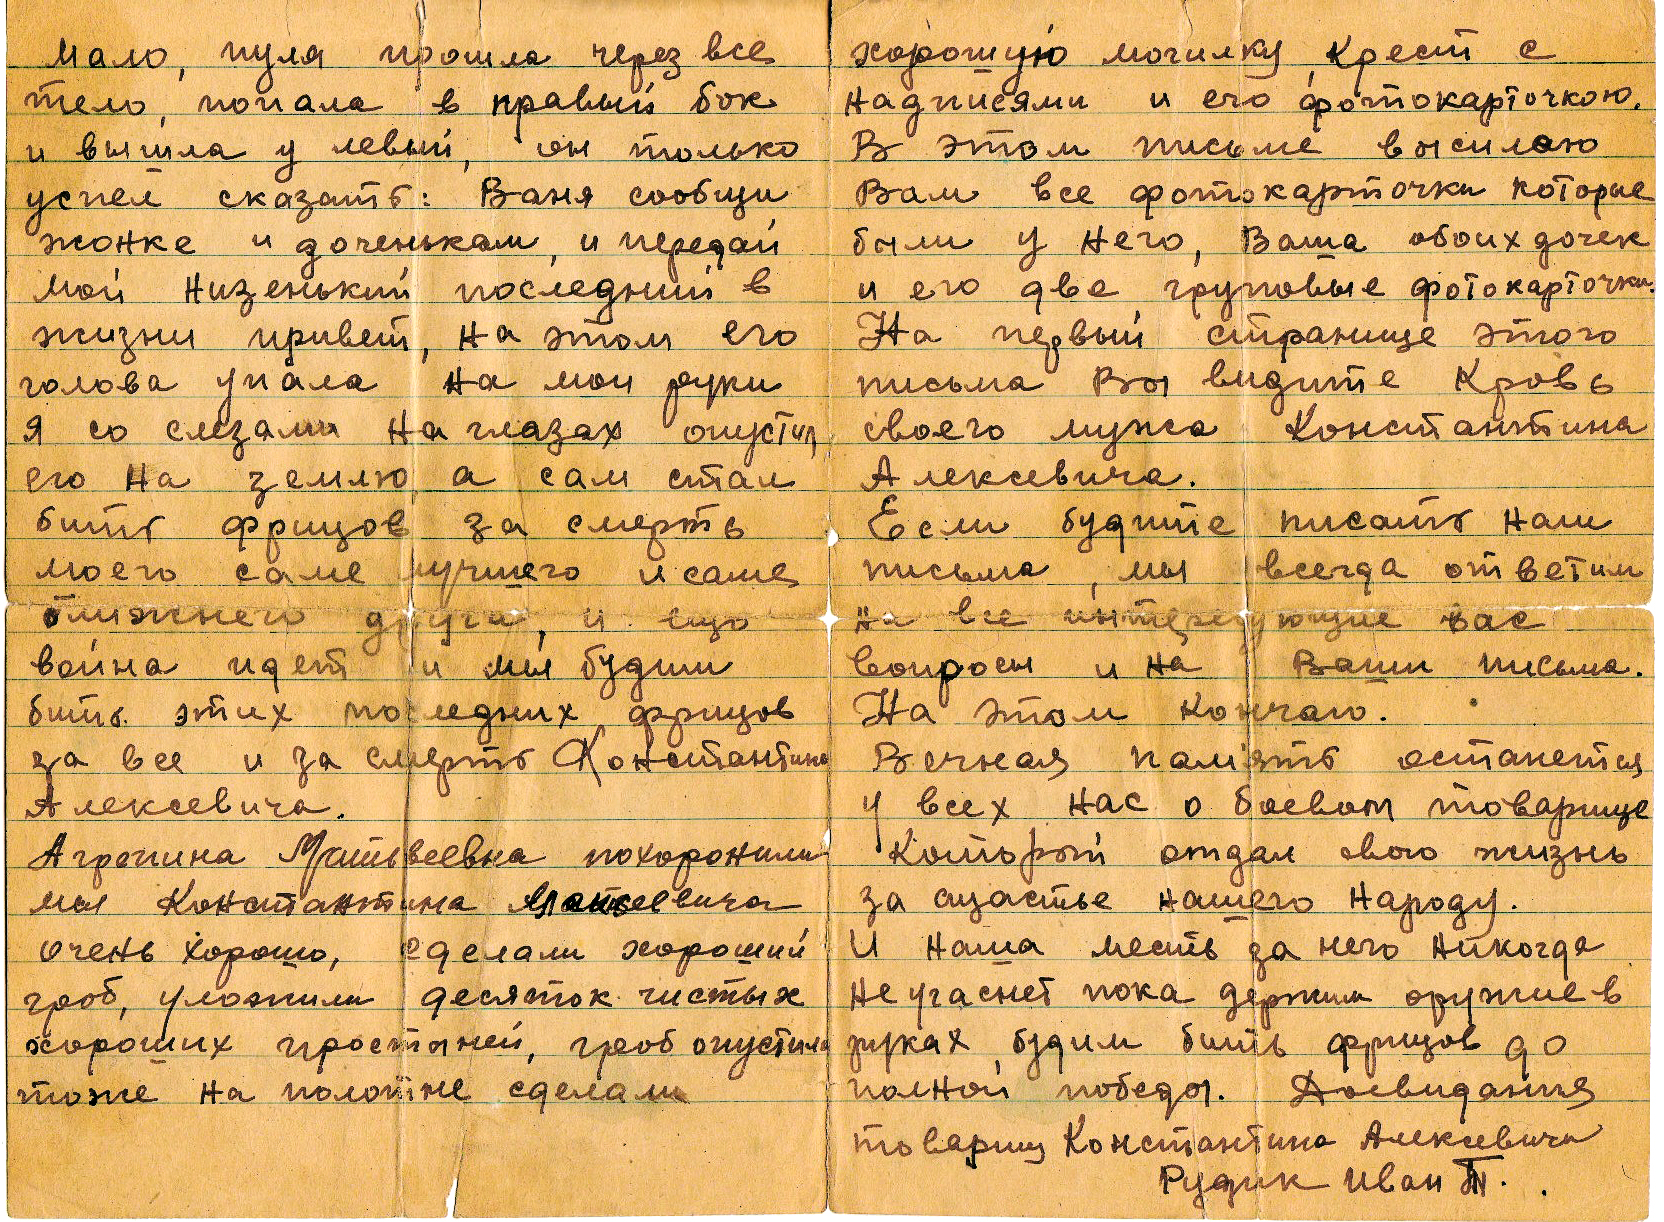 мало, пуля прошла через все
тело, попала в правый бок
и вышла у левый, он только
успел сказать: Ваня сообщи
жонке и доченькам, и передай
мой низенький последний в
жизни привет, на этом его
голова упала на мои руки
я со слезами на глазах опустил
его на землю а сам стал
бить фрицов за смерть
моего саме лучшего и саме
ближнего друга, и ещо
война идет и мы будим
бить этих последних фрицов
за все и за смерть Константина
Алексевича.
Агрепина Матьвеевна похоронили
мы Константина
очень хорошо, сделали хороший
гроб, уложили десяток чистых
хороших простыней, гроб опустили
тоже на полотне сделали
хорошую могилку, крест с
надписями и его фотокарточкою.
В этом письме висилаю
Вам все фотокарточки которые
были у него, Ваша обоих дочек
и его две груповые фотокарточки.
На первый странице этого
письма Вы видите кровь
своего мужа Константина
Алексевича.
Если будите писать нам
письма, мы всегда ответим
на все интерезующие вас
вопросы и на Ваши письма.
На этом кончаю.
Вечная пам'ять останется
у всех нас о боевом товарище
Который отдал свою жизнь
за щастье нашего народу.
И наша месть за него никогда
не угаснет пока держим оружие в
руках будим бить фрицов до
полной победы. Досвидания
товарищ Константина Алексевича
Рудик Иван Т.